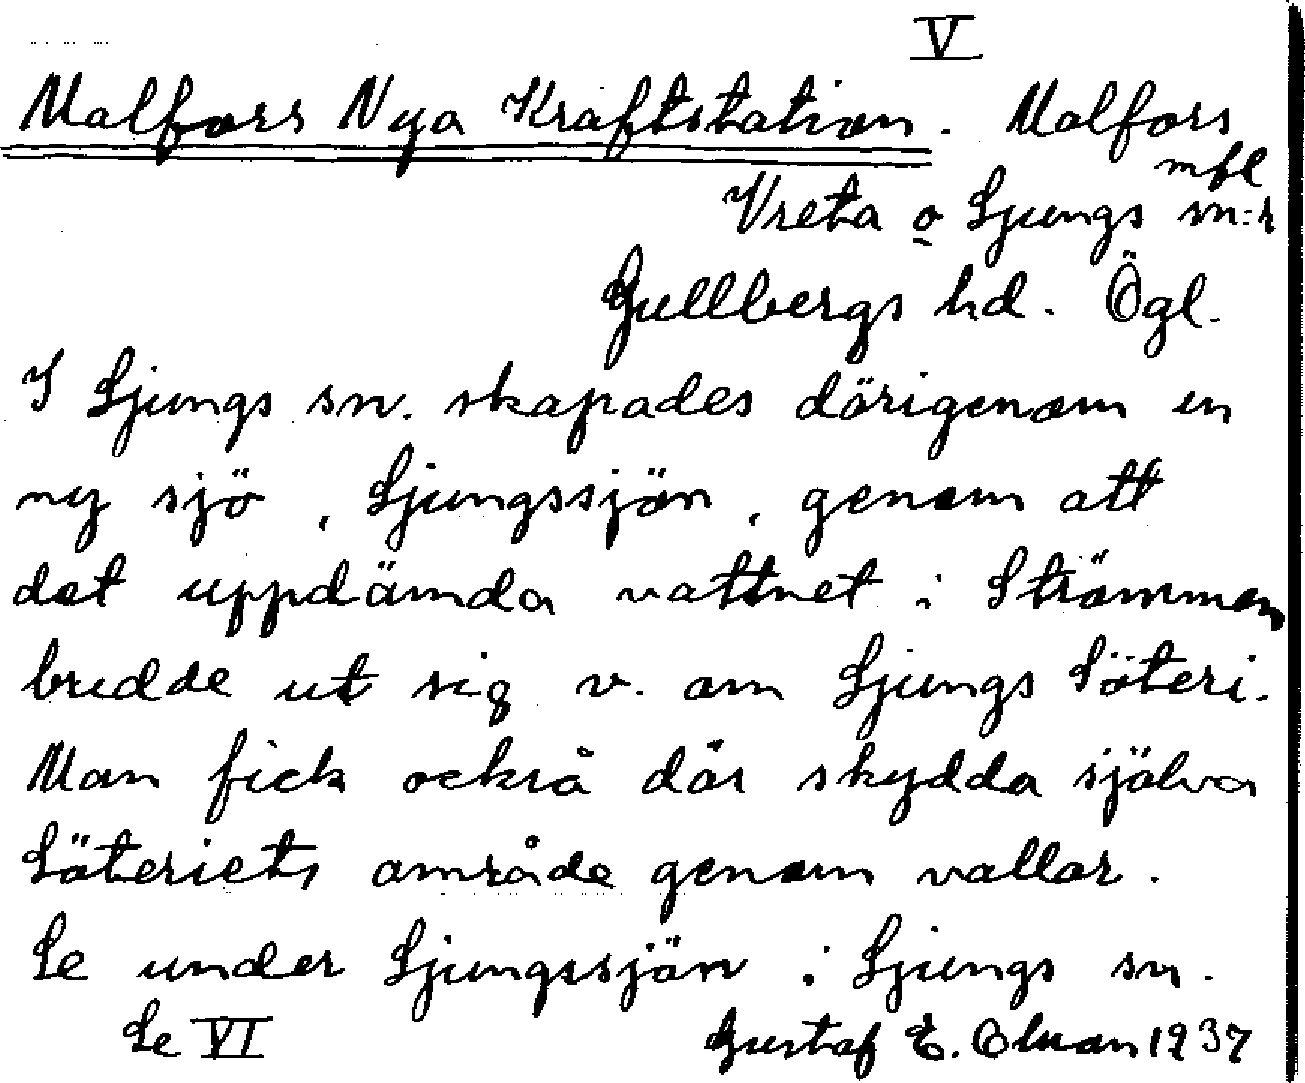 V
Malfors Nya Kraftstation. Malfors
mfl
Vreta o Ljungs sn:r
Gullbergs hd. Ögl.
I Ljungs sn. skapades därigenom en
ny sjö, Ljungssjön, genom att
det uppdämda vattnet i Strömmen
bredde ut sig v. om Ljungs Säteri.
Man fick också där skydda själva
Säteriets område genom vallar.
Se under Ljungssjön i Ljungs sn.
Se VI
Gustaf E. 1937